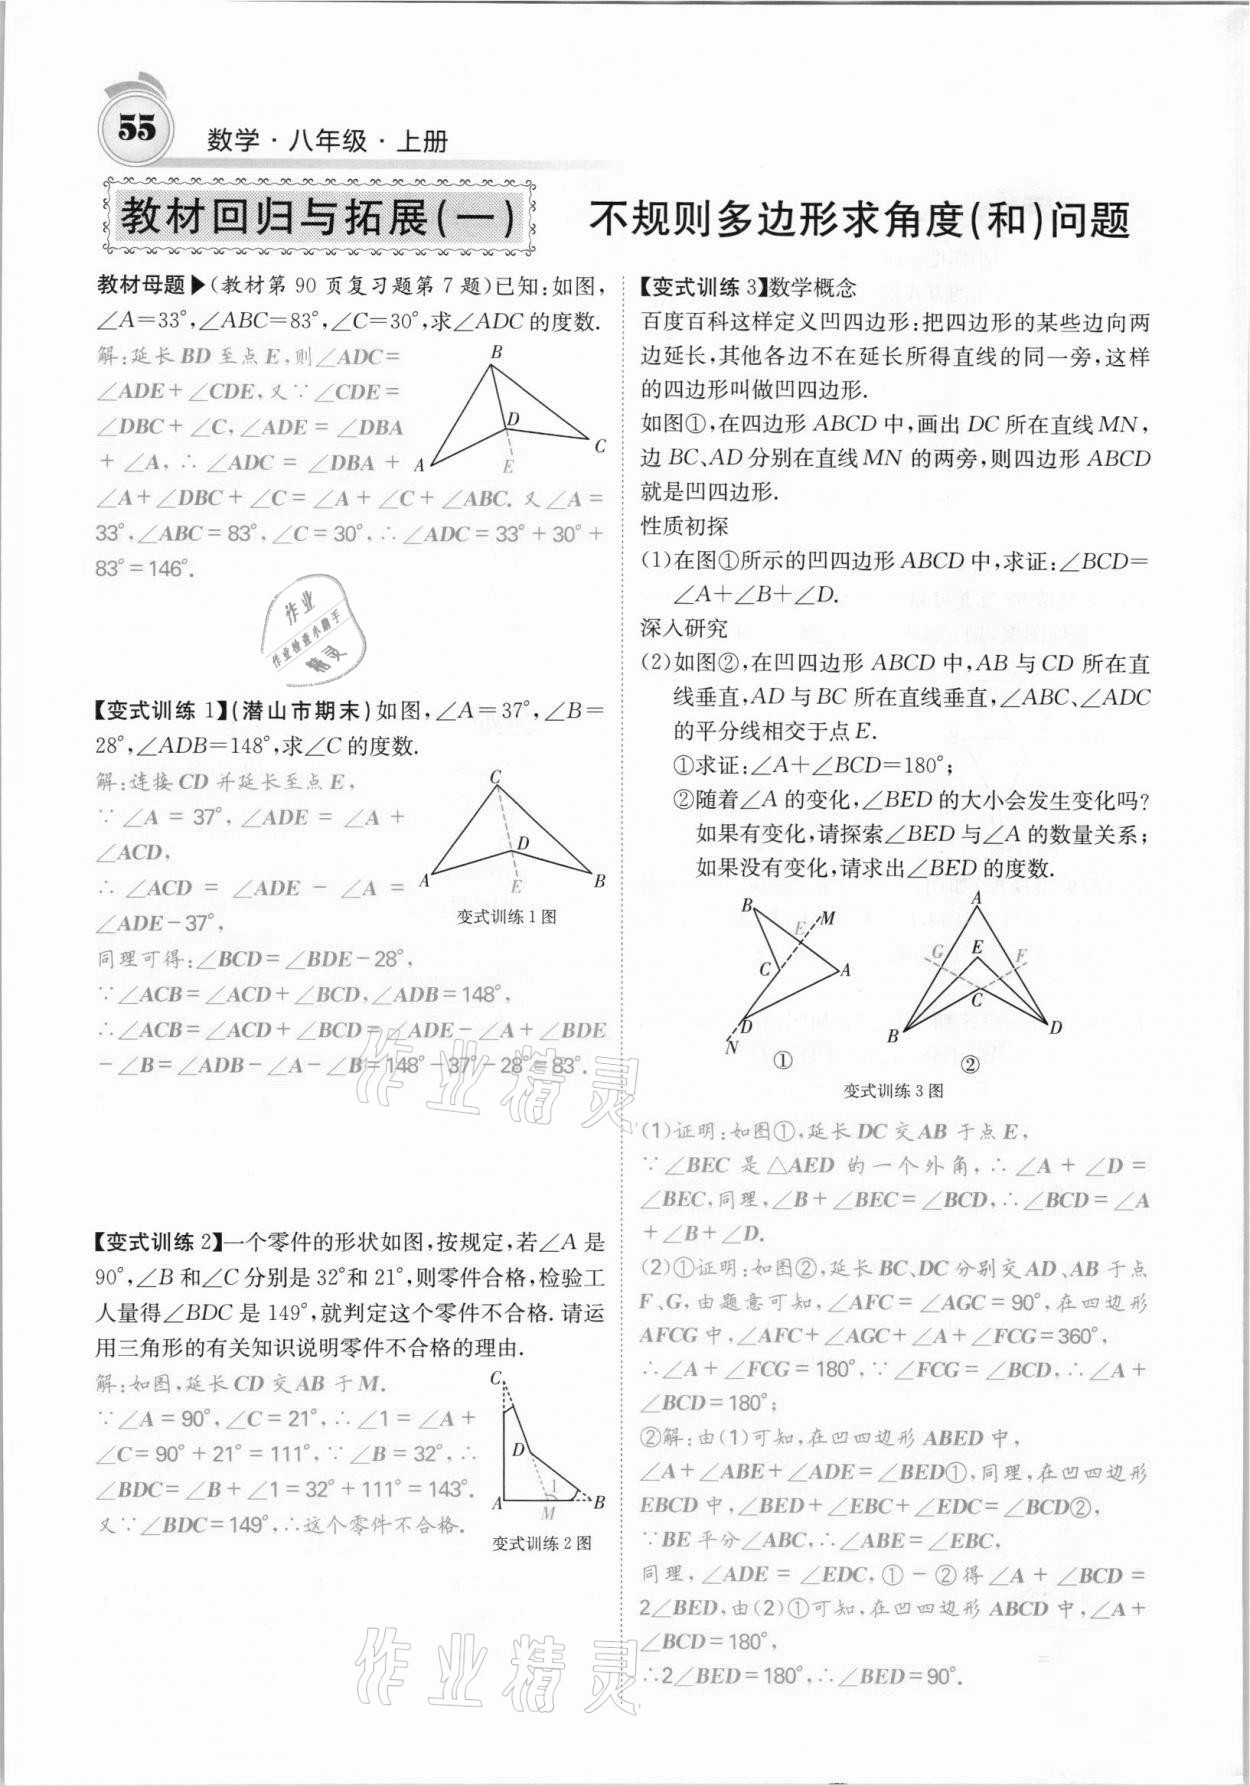 55
数学·八年级·上册
教材回归与拓展(一) 不规则多边形求角度(和)问题
教材母题▶(教材第 90 页复习题第 7 题)已知:如图,
∠A=33°,∠ABC=83°,∠C=30°,求∠ADC 的度数.
解:延长 BD 至点 E,则∠ADC=
∠ADE+∠CDE,又∵∠CDE=
∠DBC+∠C,∠ADE=∠DBA
+∠A,∴∠ADC=∠DBA+
∠A+∠DBC+∠C=∠A+∠C+∠ABC.又∠A=
33°,∠ABC=83°,∠C=30°,∴∠ADC=33°+30°+
83°=146°.
B
D
C
A
E
作业
作业检查小助手
精灵
【变式训练 1】(潜山市期末)如图,∠A=37°,∠B=
28°,∠ADB=148°,求∠C 的度数.
解:连接 CD 并延长至点 E,
∵∠A=37°,∠ADE=∠A+
∠ACD,
∴∠ACD=∠ADE-∠A=
∠ADE-37°,
同理可得:∠BCD=∠BDE-28°,
∵∠ACB=∠ACD+∠BCD,∠ADB=148°,
∴∠ACB=∠ACD+∠BCD=∠ADE-∠A+∠BDE
-∠B=∠ADB-∠A-∠B=148°-37°-28°=83°.
C
D
A
E
B
变式训练 1 图
作业精灵
【变式训练 2】一个零件的形状如图,按规定,若∠A 是
90°,∠B 和∠C 分别是 32°和 21°,则零件合格,检验工
人量得∠BDC 是 149°,就判定这个零件不合格.请运
用三角形的有关知识说明零件不合格的理由.
解:如图,延长 CD 交 AB 于 M.
∵∠A=90°,∠C=21°,∴∠1=∠A+
∠C=90°+21°=111°,∵∠B=32°,∴
∠BDC=∠B+∠1=32°+111°=143°.
又∵∠BDC=149°,∴这个零件不合格.
C
D
1
A
M
B
变式训练 2 图
作业精灵
【变式训练 3】数学概念
百度百科这样定义凹四边形:把四边形的某些边向两
边延长,其他各边不在延长所得直线的同一旁,这样
的四边形叫做凹四边形.
如图①,在四边形 ABCD 中,画出 DC 所在直线 MN,
边 BC、AD 分别在直线 MN 的两旁,则四边形 ABCD
就是凹四边形.
性质初探
(1)在图①所示的凹四边形 ABCD 中,求证:∠BCD=
∠A+∠B+∠D.
深入研究
(2)如图②,在凹四边形 ABCD 中,AB 与 CD 所在直
线垂直,AD 与 BC 所在直线垂直,∠ABC、∠ADC
的平分线相交于点 E.
①求证:∠A+∠BCD=180°;
②随着∠A 的变化,∠BED 的大小会发生变化吗?
如果有变化,请探索∠BED 与∠A 的数量关系;
如果没有变化,请求出∠BED 的度数.
B
E
M
C
A
D
N
①
A
G
E
F
C
B
D
②
变式训练 3 图
(1)证明:如图①,延长 DC 交 AB 于点 E,
∵∠BEC 是△AED 的一个外角,∴∠A+∠D=
∠BEC,同理,∠B+∠BEC=∠BCD,∴∠BCD=∠A
+∠B+∠D.
(2)①证明:如图②,延长 BC、DC 分别交 AD、AB 于点
F、G,由题意可知,∠AFC=∠AGC=90°,在四边形
AFCG 中,∠AFC+∠AGC+∠A+∠FCG=360°,
∴∠A+∠FCG=180°,∵∠FCG=∠BCD,∴∠A+
∠BCD=180°;
②解:由(1)可知,在凹四边形 ABED 中,
∠A+∠ABE+∠ADE=∠BED①,同理,在凹四边形
EBCD 中,∠BED+∠EBC+∠EDC=∠BCD②,
∵BE 平分∠ABC,∴∠ABE=∠EBC,
同理,∠ADE=∠EDC,①-②得∠A+∠BCD=
2∠BED,由(2)①可知,在凹四边形 ABCD 中,∠A+
∠BCD=180°,
∴2∠BED=180°,∴∠BED=90°.